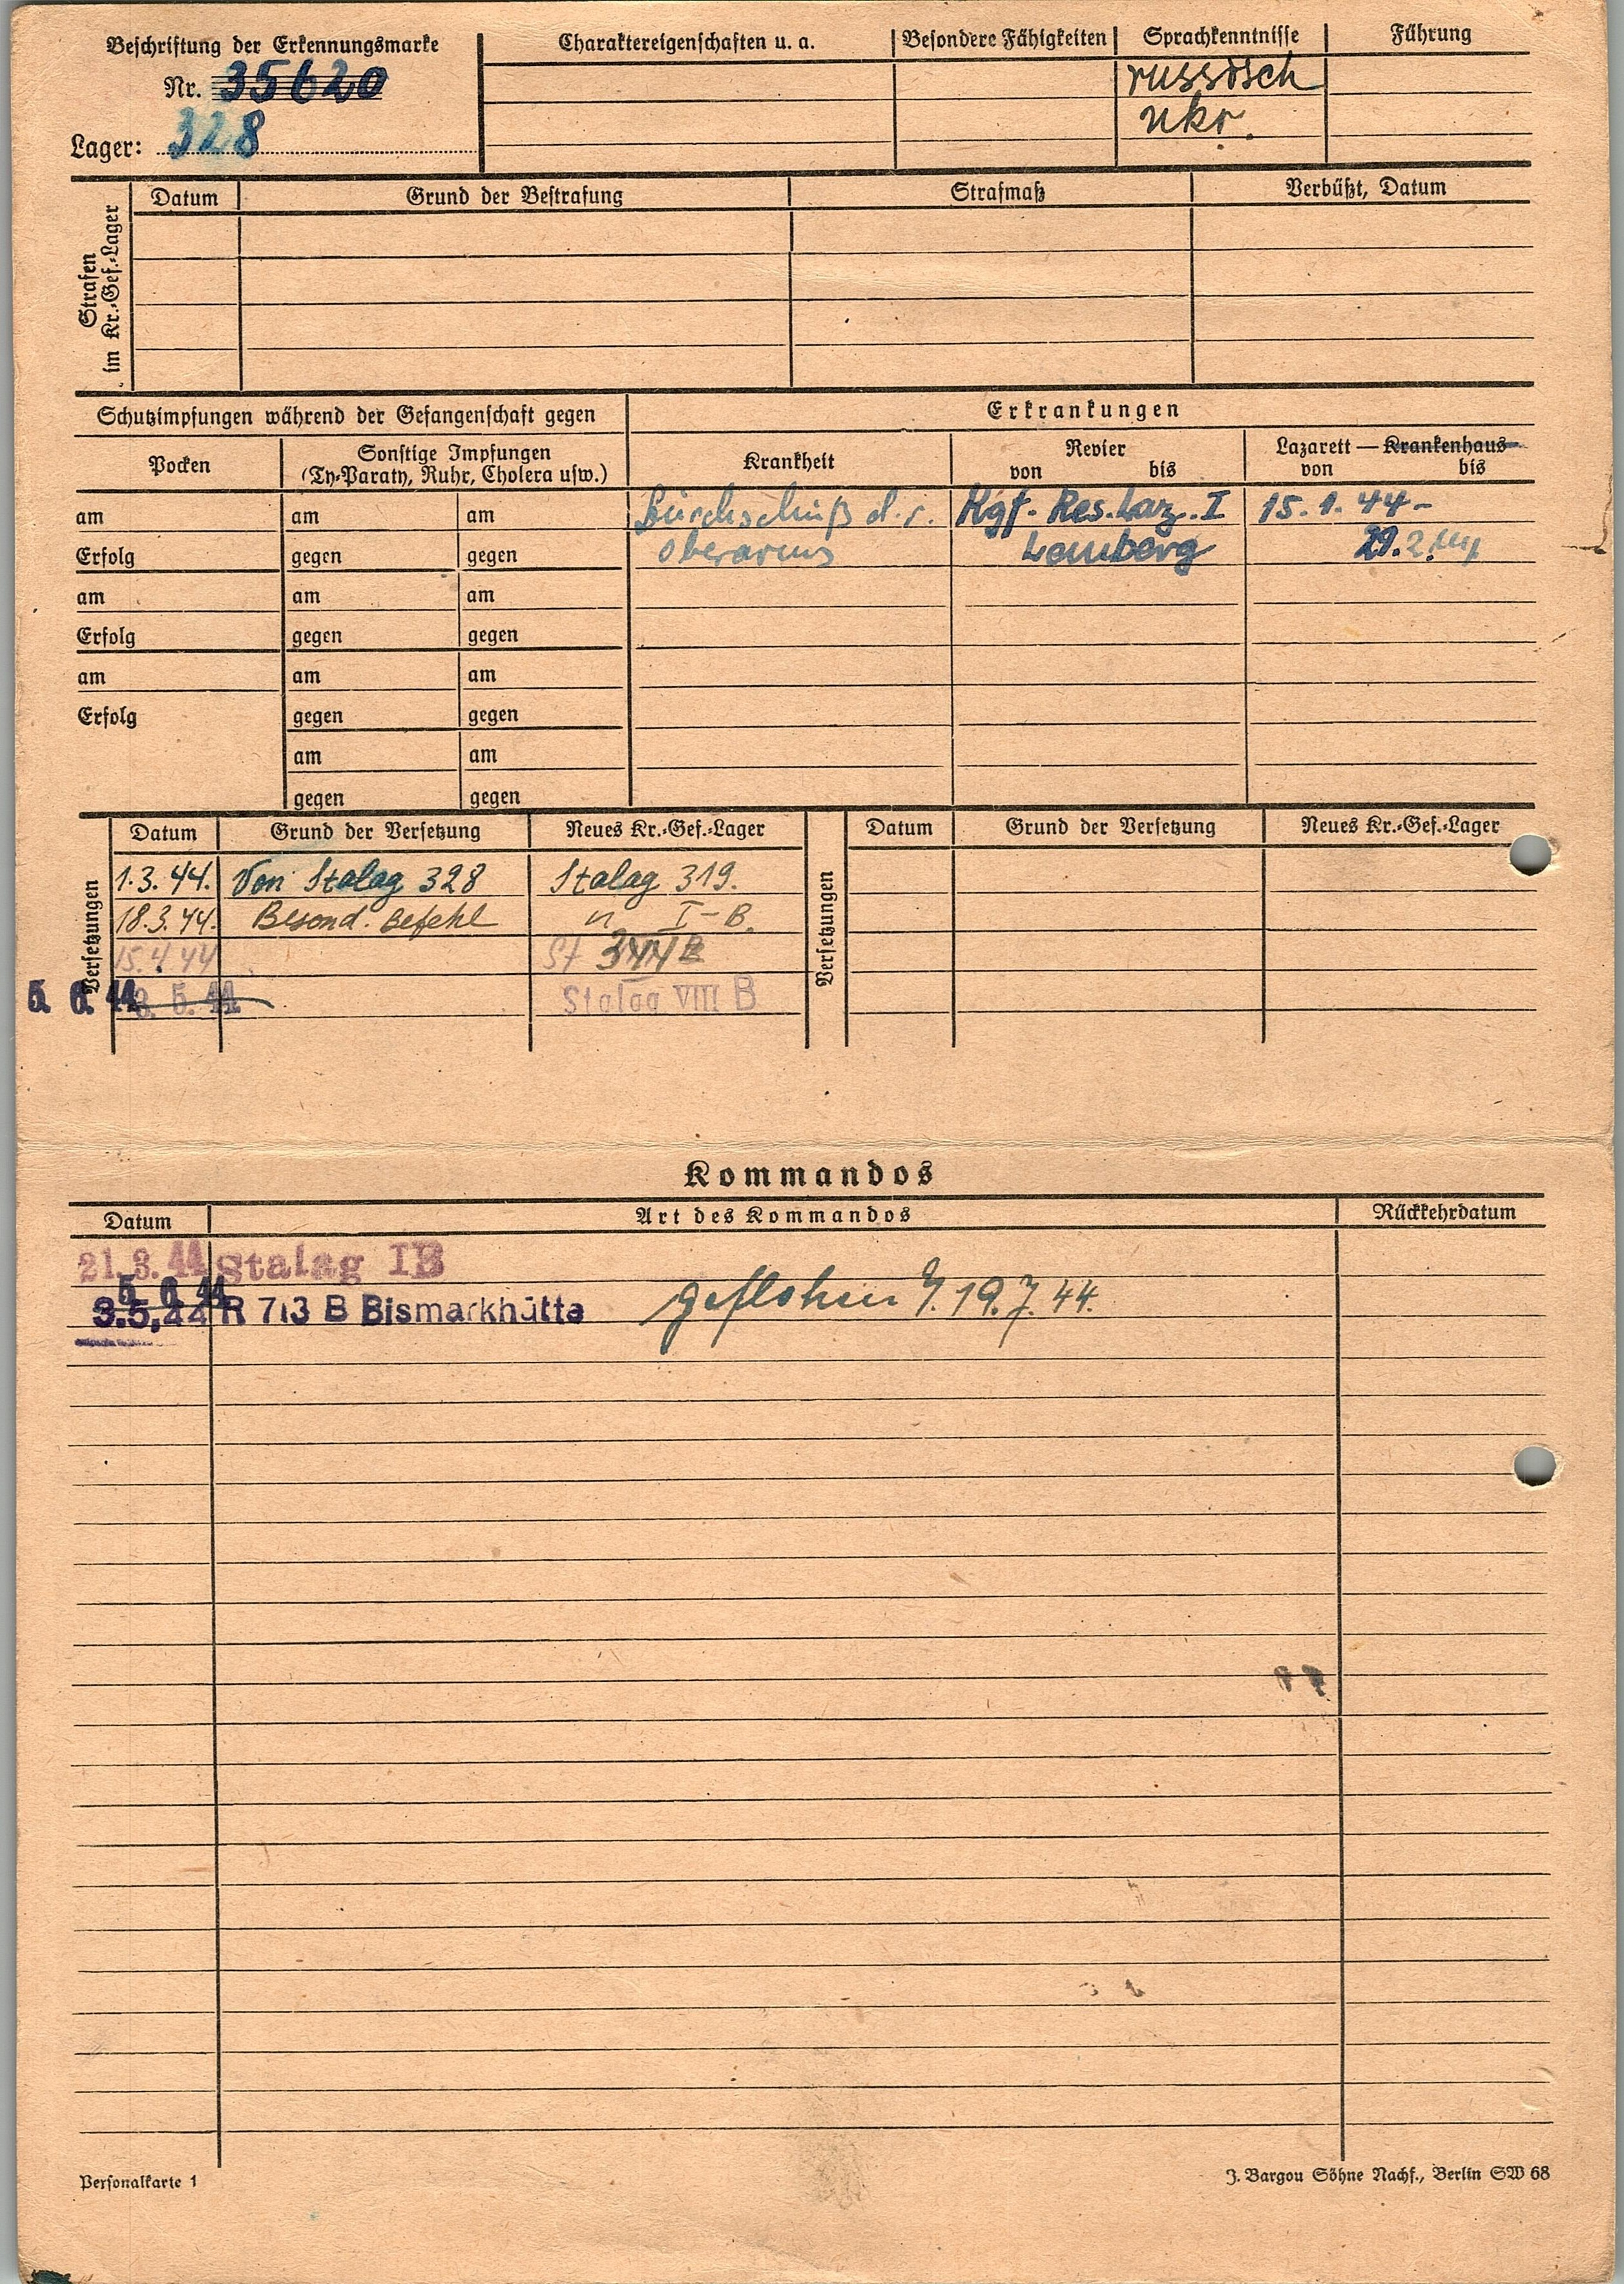 Beschriftung der Erkennungsmarke
Nr. 35620
Lager: 328
Charaktereigenschaften u. a.
Besondere Fähigkeiten
Sprachkenntnisse
russisch
ukr.
Führung
Strafen im Kr.-Gef.-Lager
Datum Grund der Bestrafung Strafmaß Verbüßt, Datum
Schutzimpfungen während der Gefangenschaft gegen
Pocken
Sonstige Impfungen
(Ty-Paraty, Ruhr, Cholera usw.)
am am am
Erfolg gegen gegen
am am am
Erfolg gegen gegen
am am am
Erfolg gegen gegen
am am
gegen gegen
Erkrankungen
Krankheit Revier von bis Lazarett — Krankenhaus von bis
Durchschuß d. r. Kgf. Res. Laz. I 15.1.44-
Oberarms Lemberg 29.2.44
Versetzungen
Datum Grund der Versetzung Neues Kr.-Gef.-Lager
1.3.44. Von Stalag 328 Stalag 319.
18.3.44. Besond. Befehl " I-B.
15.4 44 St 344
5. 6. 44 3. 5. 44 Stalag VIII B
Versetzungen
Datum Grund der Versetzung Neues Kr.-Gef.-Lager
Kommandos
Datum Art des Kommandos Rückkehrdatum
21. 3. 44 Stalag IB
5. 6. 44
3.5.44 R 713 B Bismarkhütte geflohen 19.7.44.
Personalkarte 1
J. Bargou Söhne Nachf., Berlin SW 68